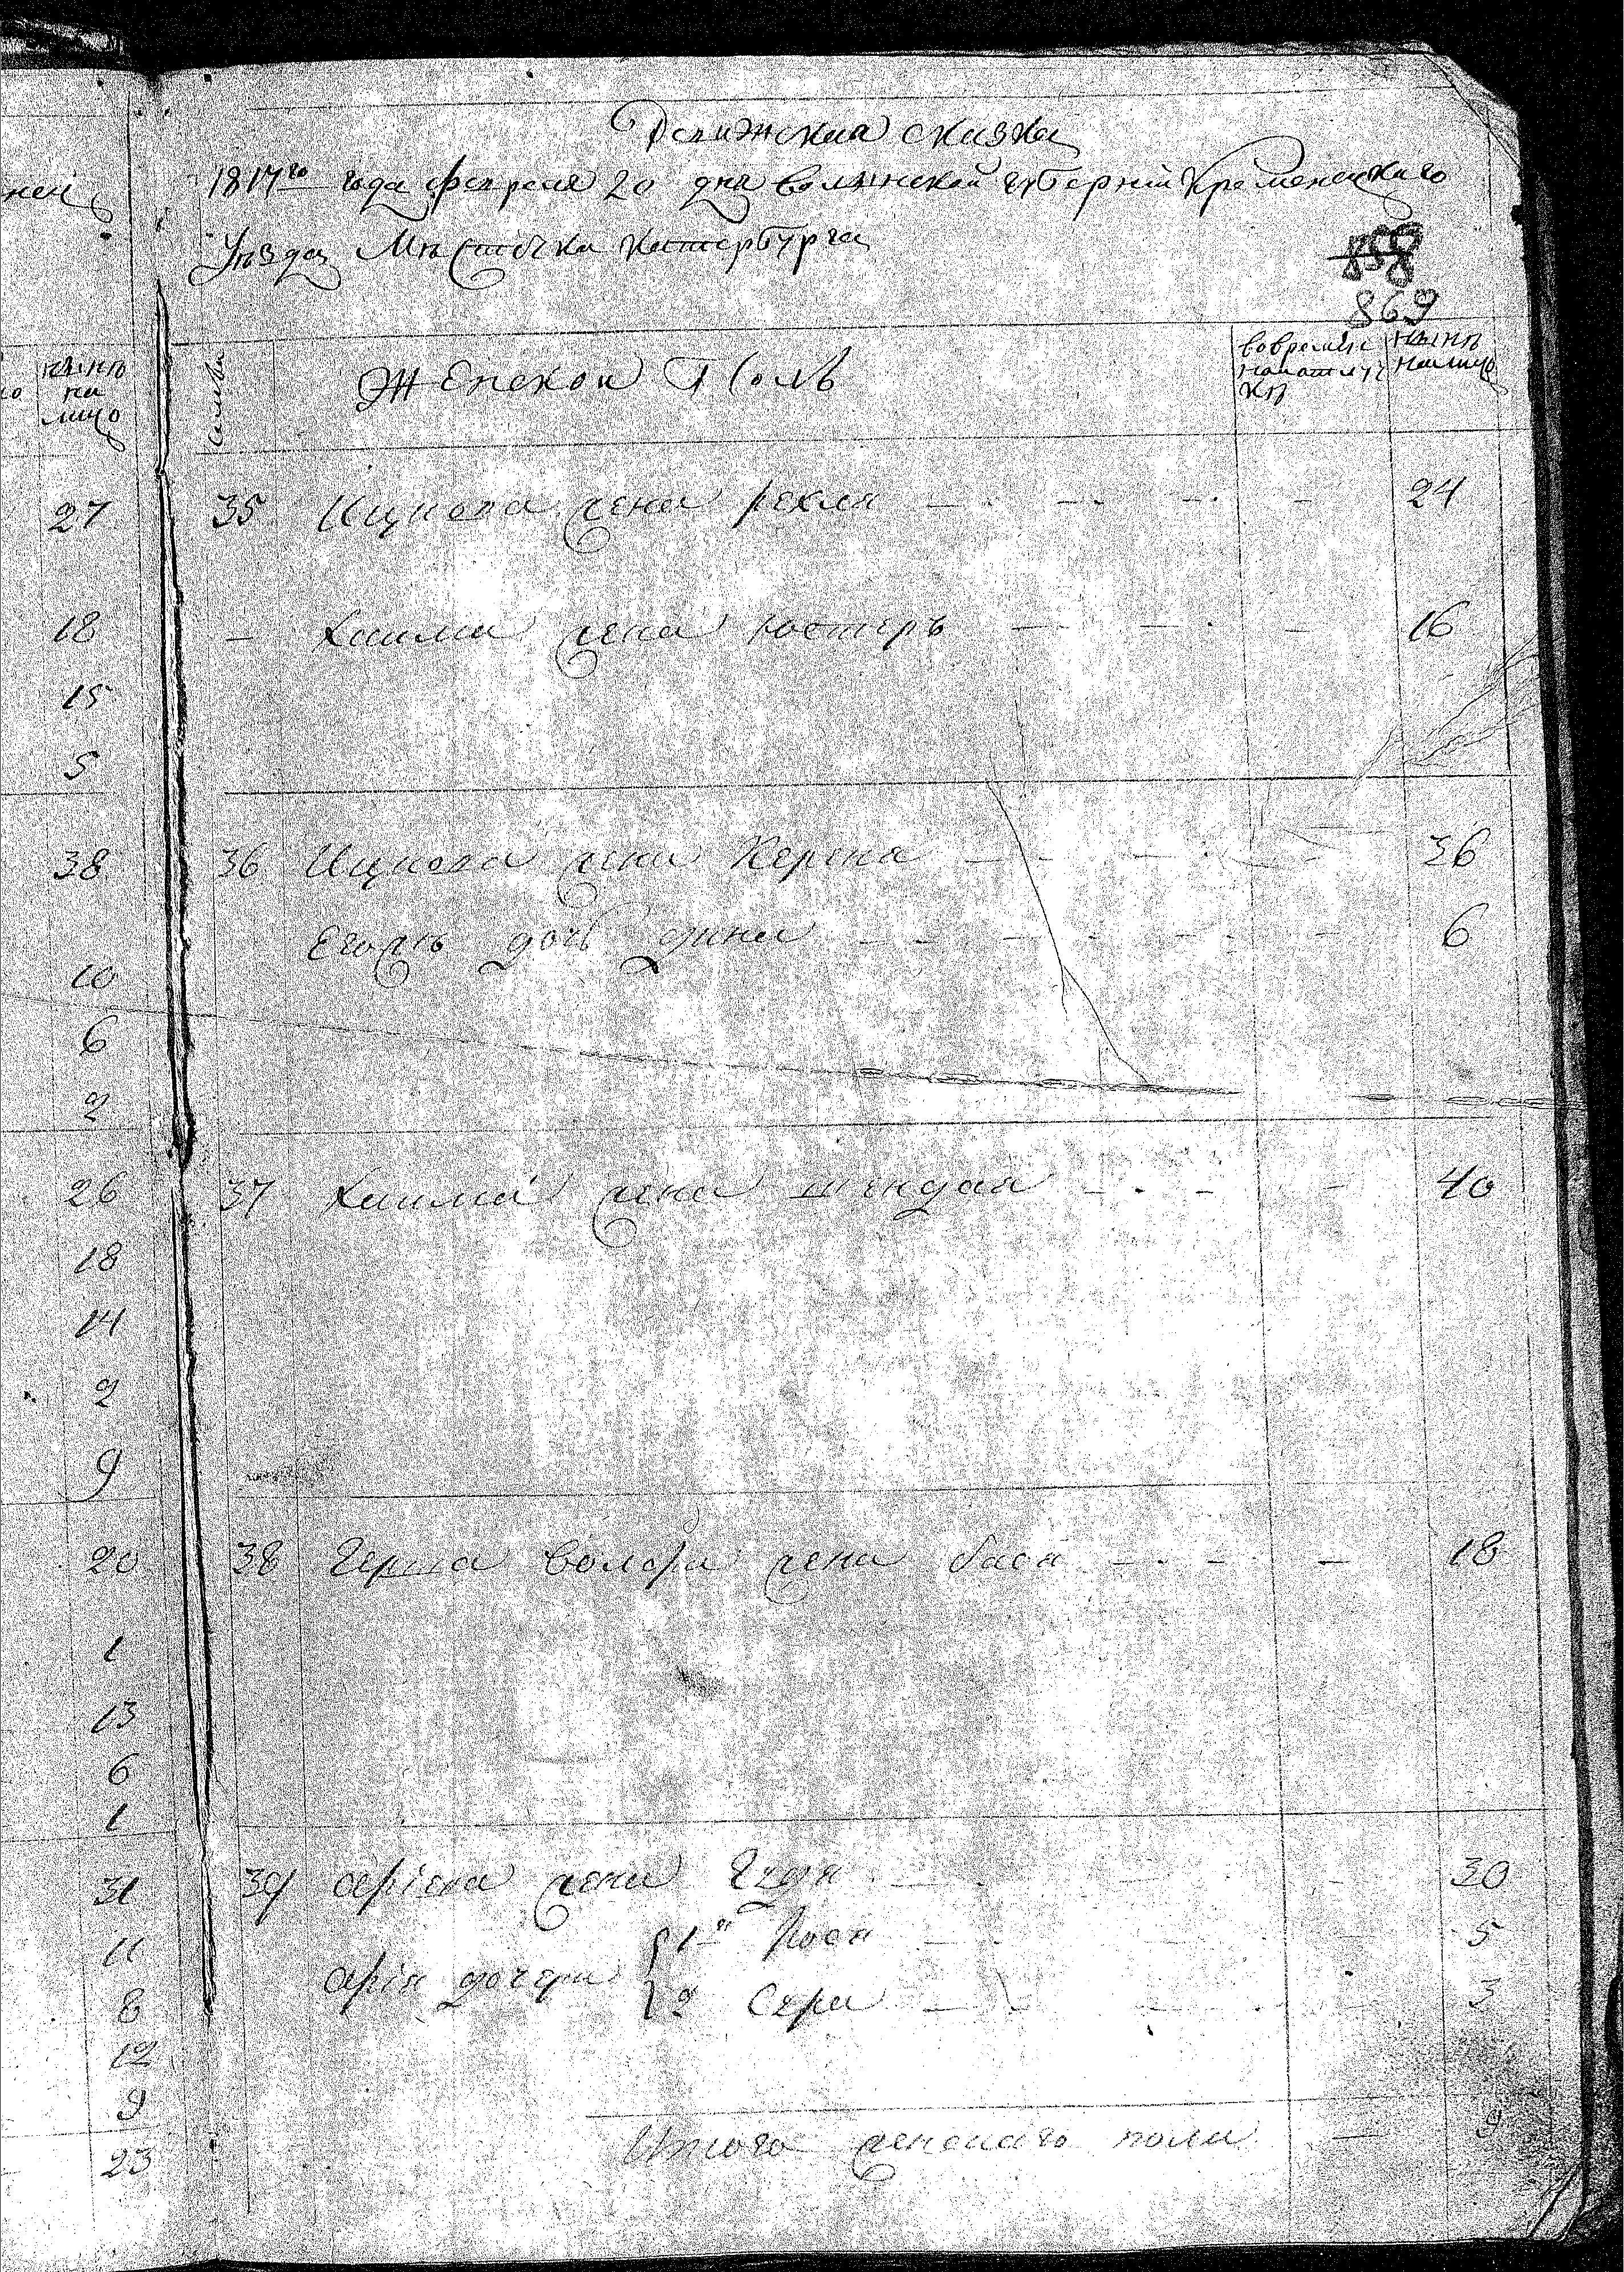 Ревижская сказка
1817го года февраля 20 дня волынской губернии Кременецкаго
Уезда Местечка Катербурга
858
869
нын на лицо
Женской Полъ
во временной отлучке
ныне на лицо
27
35 Ицкова жена рехля — — — 24
18
— Хаима жена юстеръ — — — 16
15
5
38
36 Ицкова жена Керена — — — 36
Еголь дочь дина — — — 6
10
6
2
26
37 Хаима жена шендля — — — 40
18
14
2
9
20
38 Герша волфа жена бася — — — 18
1
13
6
1
31
39 арiева жена — — 30
11
арiя дочери 1я Рося — — 5
8
2 Сура — — 3
12
9
Итого женскаго пола — 9
23